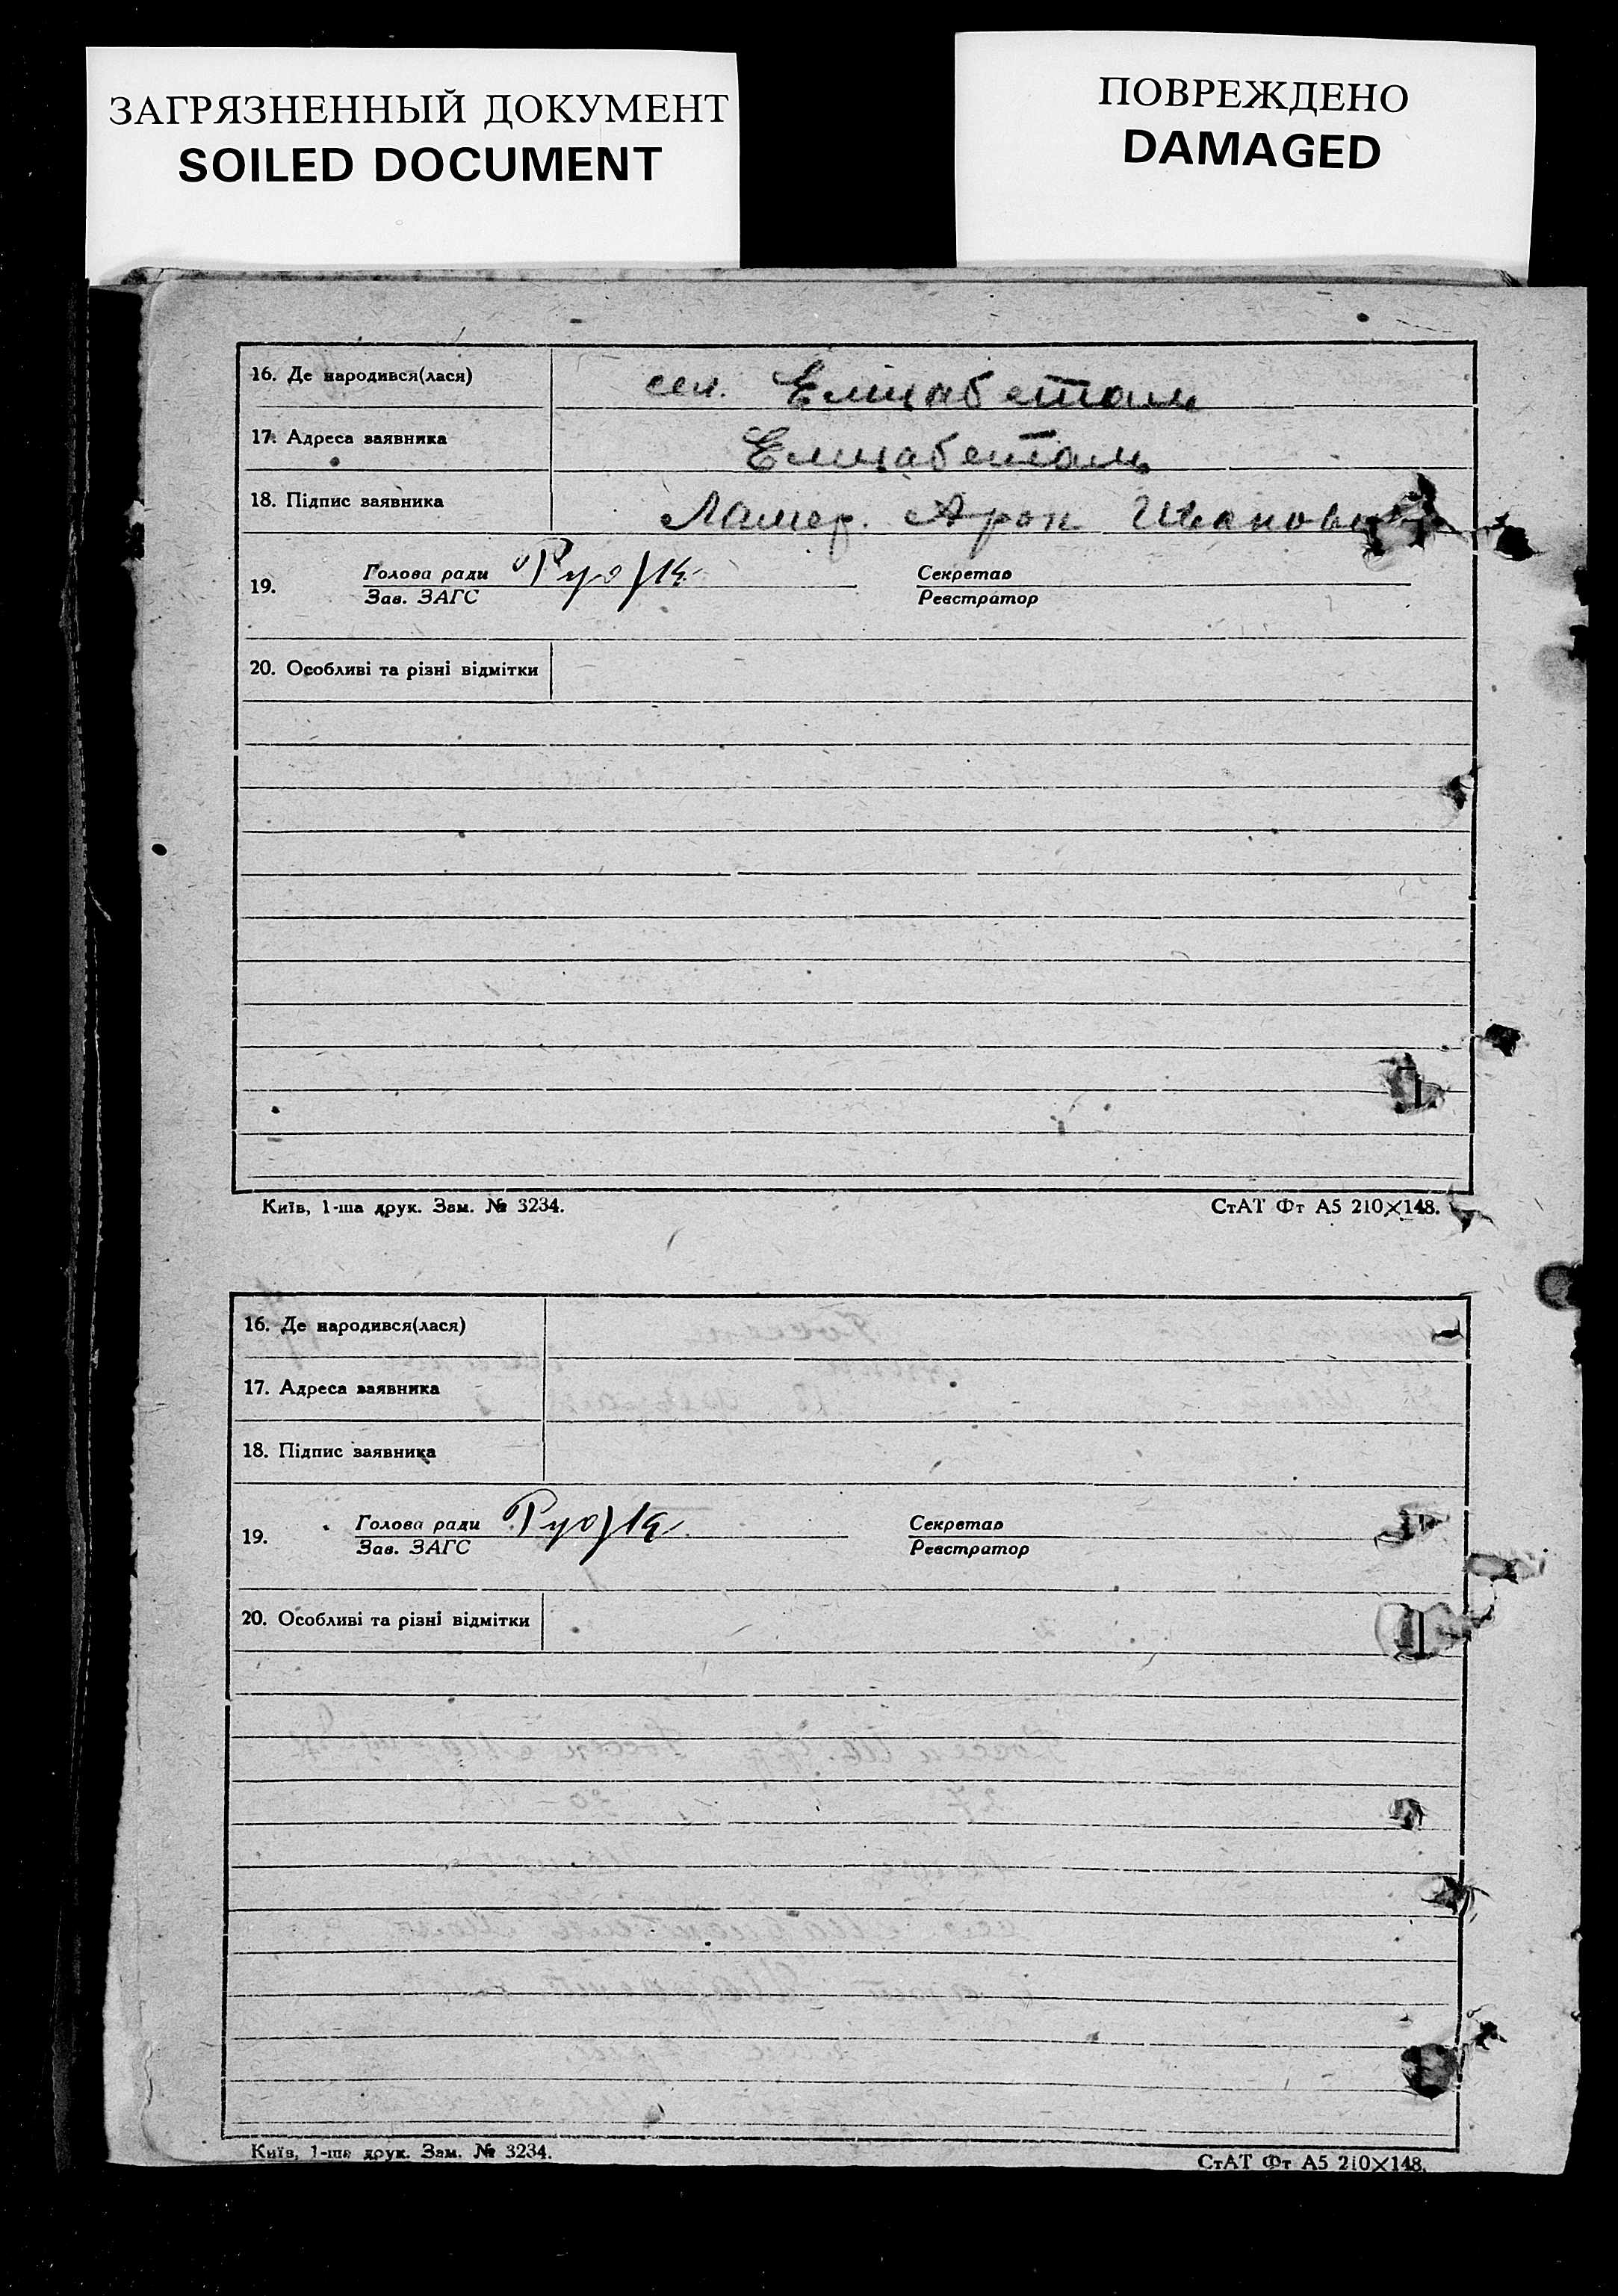 ЗАГРЯЗНЕННЫЙ ДОКУМЕНТ
SOILED DOCUMENT
ПОВРЕЖДЕНО
DAMAGED
16. Де народився(лася) сел. Елизабеталь
17. Адреса заявника Елизабеталь
18. Підпис заявника Ламер. Арон Иванов
19. Голова ради Секретар
Зав. ЗАГС Реєстратор
20. Особливі та різні відмітки
Київ, 1-ша друк. Зам. № 3234. СтАТ Фт А5 210×148.
16. Де народився(лася)
17. Адреса заявника
18. Підпис заявника
19. Голова ради Секретар
Зав. ЗАГС Реєстратор
20. Особливі та різні відмітки
Київ, 1-ша друк. Зам. № 3234. СтАТ Фт А5 210×148.